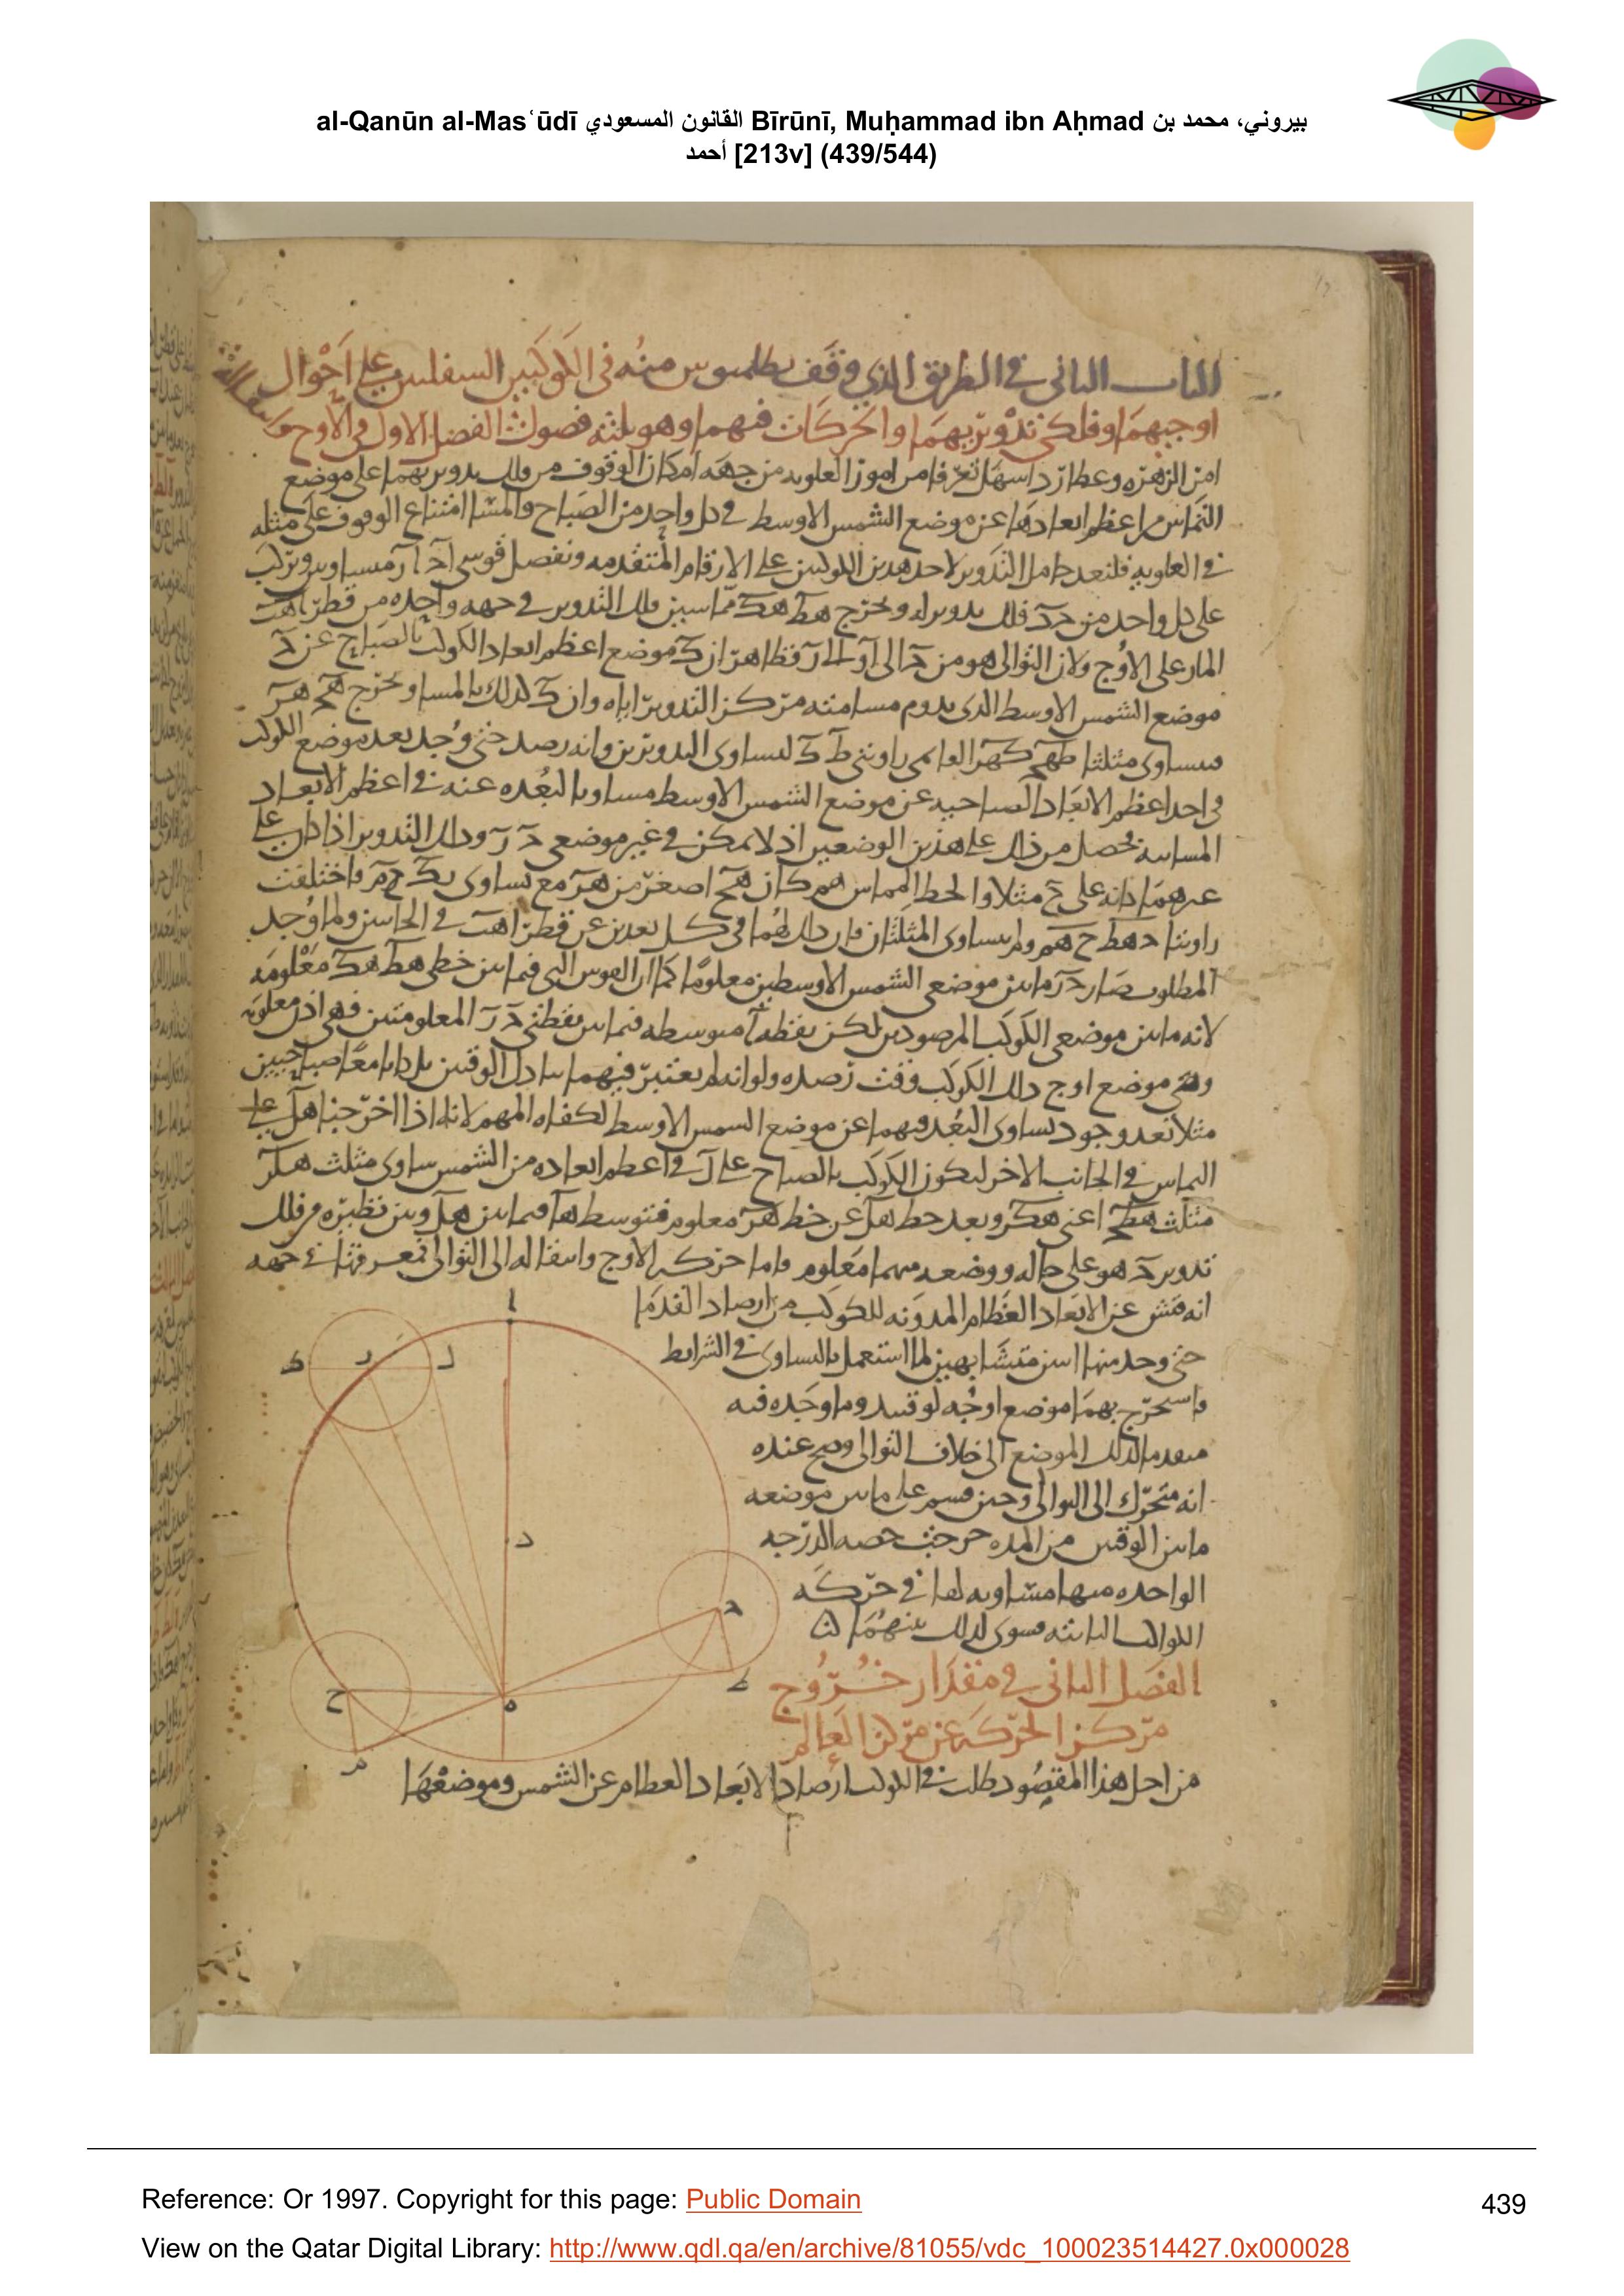 al-Qanūn al-Masʿūdī القانون المسعودي Bīrūnī, Muḥammad ibn Aḥmad بيروني، محمد بن
أحمد [213v] (439/544)
الباب الثاني في الطريق الذي وقف بطلميوس منه في الكوكبين السفليين على احوال
اوجيهما وفلكي تدويريهما والحركات فيهما وهو ثلثه فصول الفصل الاول في الاوج
امر الزهره وعطارد اسهل تعرفا من امور العلويه من جهه امكان الوقوف من فلك تدويريهما على موضع
التماس من اعظم ابعادها عن موضع الشمس الاوسط في كل واحد من الصباح والمسا امتناع الوقوف على مثله
في العلويه فلنعد حامل التدوير لاحد هذين الكوكبين على الارقام المتقدمه ونفصل قوسي
على كل واحد من فلك تدويره ونخرج مماسين فلك التدوير في جهه واحده من قطر
المار على الاوج ولان التوالي هو من الى فظاهر ان موضع اعظم ابعاد الكوكب بالصباح عن
موضع الشمس الاوسط الذي يدوم مسامته مركز التدوير اياه وان كذلك بالمسا ونخرج
فيتساوى مثلثا لتساوي التدويرين وانه رصد حتى وجد بعد موضع الكوكب
في احد اعظم الابعاد الصباحيه عن موضع الشمس الاوسط مساويا لبعده عنه في اعظم الابعاد
المسائيه فحصل من ذلك على هذين الوضعين اذ لا يمكن في غير موضعي وذلك التدوير اذا كان على
غيرهما كانه على مثلا والخط المماس كان اصغر من مع تساوي فاختلفت
زاويتا ولم يتساوى المثلثان فان ذلك لهما في كل بعدين عن قطر في الجانبين ولما وجد
المطلوب صار ما بين موضعي الشمس الاوسطين معلوما كما ان القوس التي فيما بين خطي معلومه
لانه ما بين موضعي الكوكب المرصودين لكن نقطه متوسطه فيما بين نقطتي المعلومتين فهي اذن معلومه
وهي موضع اوج ذلك الكوكب وقت رصده ولو انه لم يعتبر فيهما تبادل الوقتين بل كانا معا صباحيين
مثلا بعد وجود تساوي البعد فيهما عن موضع الشمس الاوسط لكفاه المهم لانه اذا اخرجنا على
التماس في الجانب الاخر ليكون الكوكب بالصباح على في اعظم ابعاده من الشمس ساوى مثلث
مثلث اعني وبعد خط عن خط معلوم فتوسط فيما بين وبين نظيره من فلك
تدوير هو على حاله ووضعه منهما معلوم واما حركه الاوج وانتقاله الى التوالي فمعرفتها من جهه
انه فتش عن الابعاد العظام المدونه للكوكب من ارصاد القدما
حتى وجد منها اثنين متشابهين لما استعمل بالتساوي في الشرايط
فاستخرج بهما موضع اوجه لوقتيه وما وجده فيه
متقدما لذلك الموضع الى خلاف التوالي وصح عنده
انه متحرك الى التوالي وحين قسم على ما بين موضعيه
ما بين الوقتين من المده خرجت حصه الدرجه
الواحده منها مساويه لها في حركه
الكواكب الثابته فسوى لذلك بينهما
الفصل الثاني في مقدار خروج
مركز الحركه عن مركز العالم
من اجل هذا المقصود طلب في الكوكب ارصاد الابعاد العظام عن الشمس وموضعها
Reference: Or 1997. Copyright for this page: Public Domain
439
View on the Qatar Digital Library: http://www.qdl.qa/en/archive/81055/vdc_100023514427.0x000028